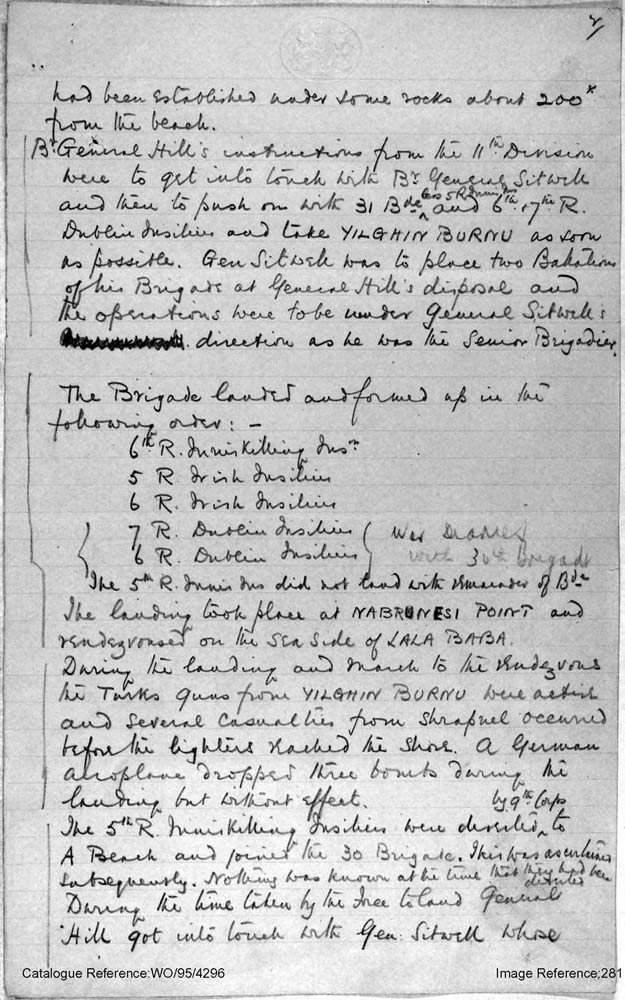 2/
had been established under some rocks about 200ˣ
from the beach.
Br General Hill's instructions from the 11th Division
were to get into touch with Br General Sitwell
and then to push on with 31 Bde less 5 R Innis Fus and 6th & 7th R.
Dublin Fusiliers and take YILGHIN BURNU as soon
as possible. Gen Sitwell was to place two Battalions
of his Brigade at General Hill's disposal and
the operations were to be under General Sitwell's
direction as he was the Senior Brigadier.
The Brigade landed and formed up in the
following order: -
6th R. Inniskilling Fusrs
5 R. Irish Fusiliers
6 R. Irish Fusiliers
7 R. Dublin Fusiliers ( War Diaries
6 R. Dublin Fusiliers with 30th Brigade
The 5th R. Innis Fus did not land with remainder of Bde
The landing took place at NABRUNESI POINT and
rendezvoused on the Sea Side of LALA BABA.
During the landing and march to the rendezvous
the Turks guns from YILGHIN BURNU were active
and several casualties from shrapnel occurred
before the lighters reached the shore. A German
aeroplane dropped three bombs during the
landing but without effect.
The 5th R. Inniskilling Fusiliers were diverted by 9th Corps to
A Beach and joined the 30 Brigade. This was ascertained
subsequently. Nothing was known at the time that they had been diverted
During the time taken by the force to land General
Hill got into touch with Gen: Sitwell whose
Catalogue Reference:WO/95/4296 Image Reference;281